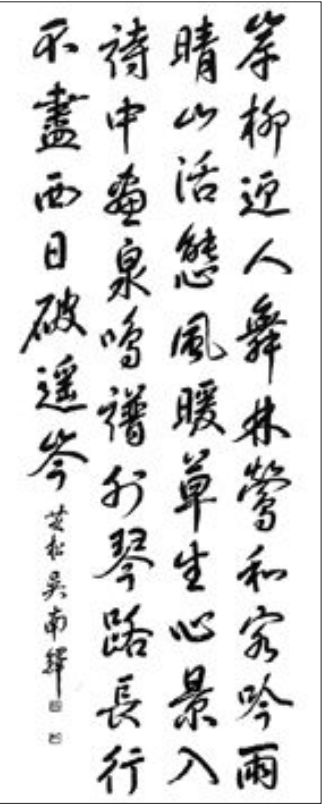 岸柳迎人舞林鶯和客吟雨
晴山活態風暖草生心景入
詩中畫泉鳴譜外琴路長行
不盡西日破遙岑
吳南